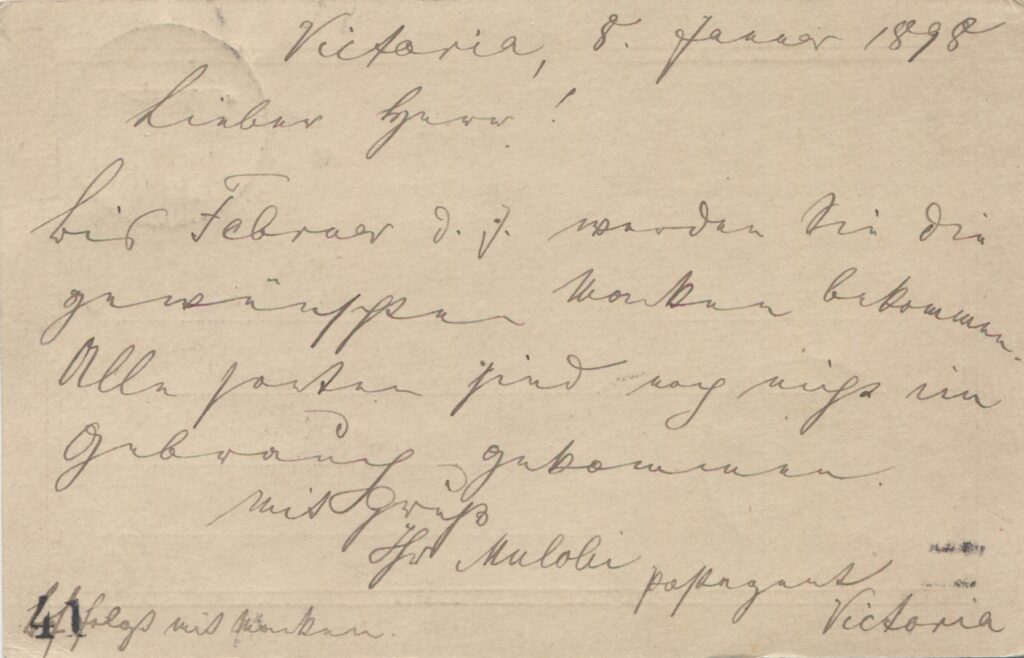 Victoria, 8. Januar 1898
Lieber Herr!
Bis Februar d. J. werden Sie die
gewünschten Marken bekommen.
Alle Sorten sind noch nicht in
Gebrauch gekommen.
Mit Gruß
Ihr Mulobi
Postagent
Victoria
41
folgt mit Marken.